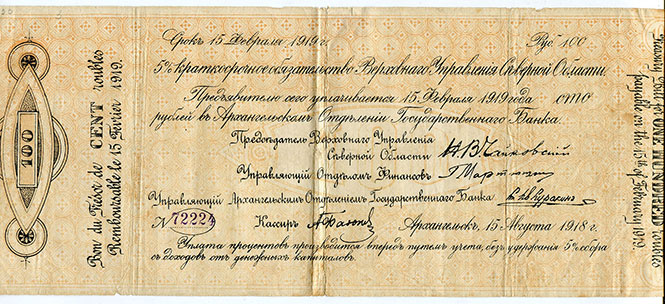 Срокъ 15 Февраля 1919 г. Руб. 100
5% краткосрочное обязательство Верховнаго Управленія Сѣверной Области.
Предъявителю сего уплачивается 15 Февраля 1919 года — сто
рублей въ Архангельскомъ Отдѣленіи Государственнаго Банка.
Предсѣдатель Верховнаго Управленія
Сѣверной Области Н. В. Чайковскій
Управляющій Отдѣломъ Финансовъ Г. Мартюшин
Управляющій Архангельскимъ Отдѣленіемъ Государственнаго Банка
№ 72224 Кассиръ Архангельскъ, 15 Августа 1918 г.
Уплата процентовъ производится впередъ путемъ учета, безъ удержанія 5% сбора
съ доходовъ отъ денежныхъ капиталовъ.
100
Bon du Trésor de CENT roubles
Remboursable le 15 Février 1919.
Treasury Bond for ONE HUNDRED roubles
payable on the 15th of February 1919.